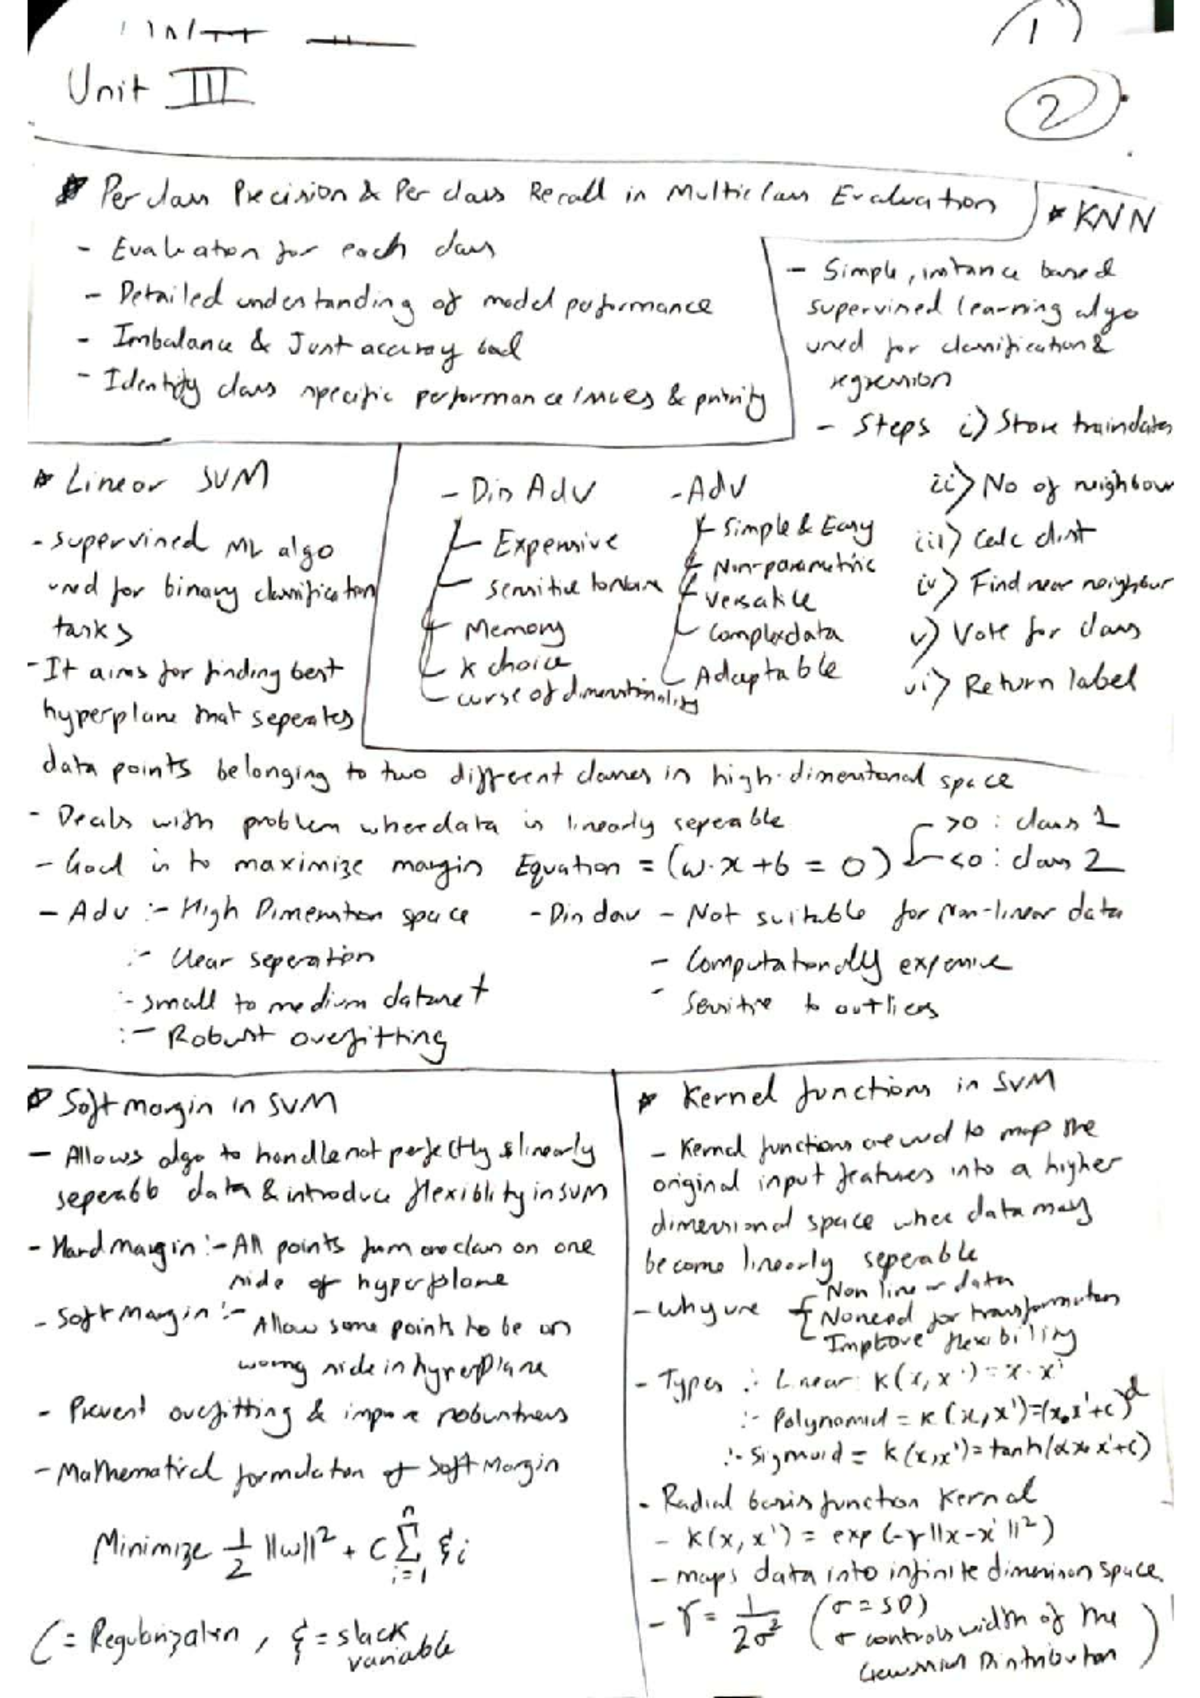 Unit III
2
* Per class Precision & Per class Recall in Multiclass Evaluation
- Evaluation for each class
- Detailed understanding of model performance
- Imbalance & Just accuracy bad
- Identify class specific performance issues & priority
* KNN
- Simple, instance based
supervised learning algo
used for classification &
regression
- Steps i) Store traindata
ii) No of neighbour
iii) Calc dist
iv) Find near neighbour
v) Vote for class
vi) Return label
- Adv
Simple & Easy
Non-parametric
Versatile
Complex data
Adaptable
- Dis Adv
Expensive
Sensitive to
Memory
K choice
curse of dimensionality
* Linear SVM
- supervised ML algo
used for binary classification
tasks
- It aims for finding best
hyperplane that seperates
data points belonging to two different classes in high-dimentional space
- Deals with problem where data is linearly seperable
- Goal is to maximize margin Equation = (w.x+b = 0) >0 : class 1
<0 : class 2
- Adv :- High Dimension space
:- Clear seperation
:- small to medium dataset
:- Robust overfitting
- Disdav - Not suitable for Non-linear data
- Computationally expensive
- Sensitive to outliers
* Soft margin in SVM
- Allows algo to handle not perfectly linearly
seperabb data & introduce flexiblity in SVM
- Hard margin :- All points from one class on one
side of hyperplane
- Soft Margin :- Allow some points to be on
wrong side in hyperplane
- Prevent overfitting & improve robustness
- Mathematical formulation of Soft Margin
Minimize 1/2 ||w||² + C Σ ξi
n
i=1
C = Regularization, ξ = slack
variable
* Kernel functions in SVM
- Kernel functions are used to map the
original input features into a higher
dimensional space where data may
become linearly seperable
- Why use Non linear data
No need for transformation
Improve flexibility
- Types :- Linear: K(x, x') = x · x'
:- Polynomial = K(x, x') = (x.x'+c)^d
:- Sigmoid = K(x,x') = tanh(αx.x'+c)
- Radial basis function Kernal
- K(x, x') = exp(-γ||x-x'||²)
- maps data into infinite dimension space.
- γ = 1/2σ² (σ = SD)
σ controls width of the
Gaussian Distribution